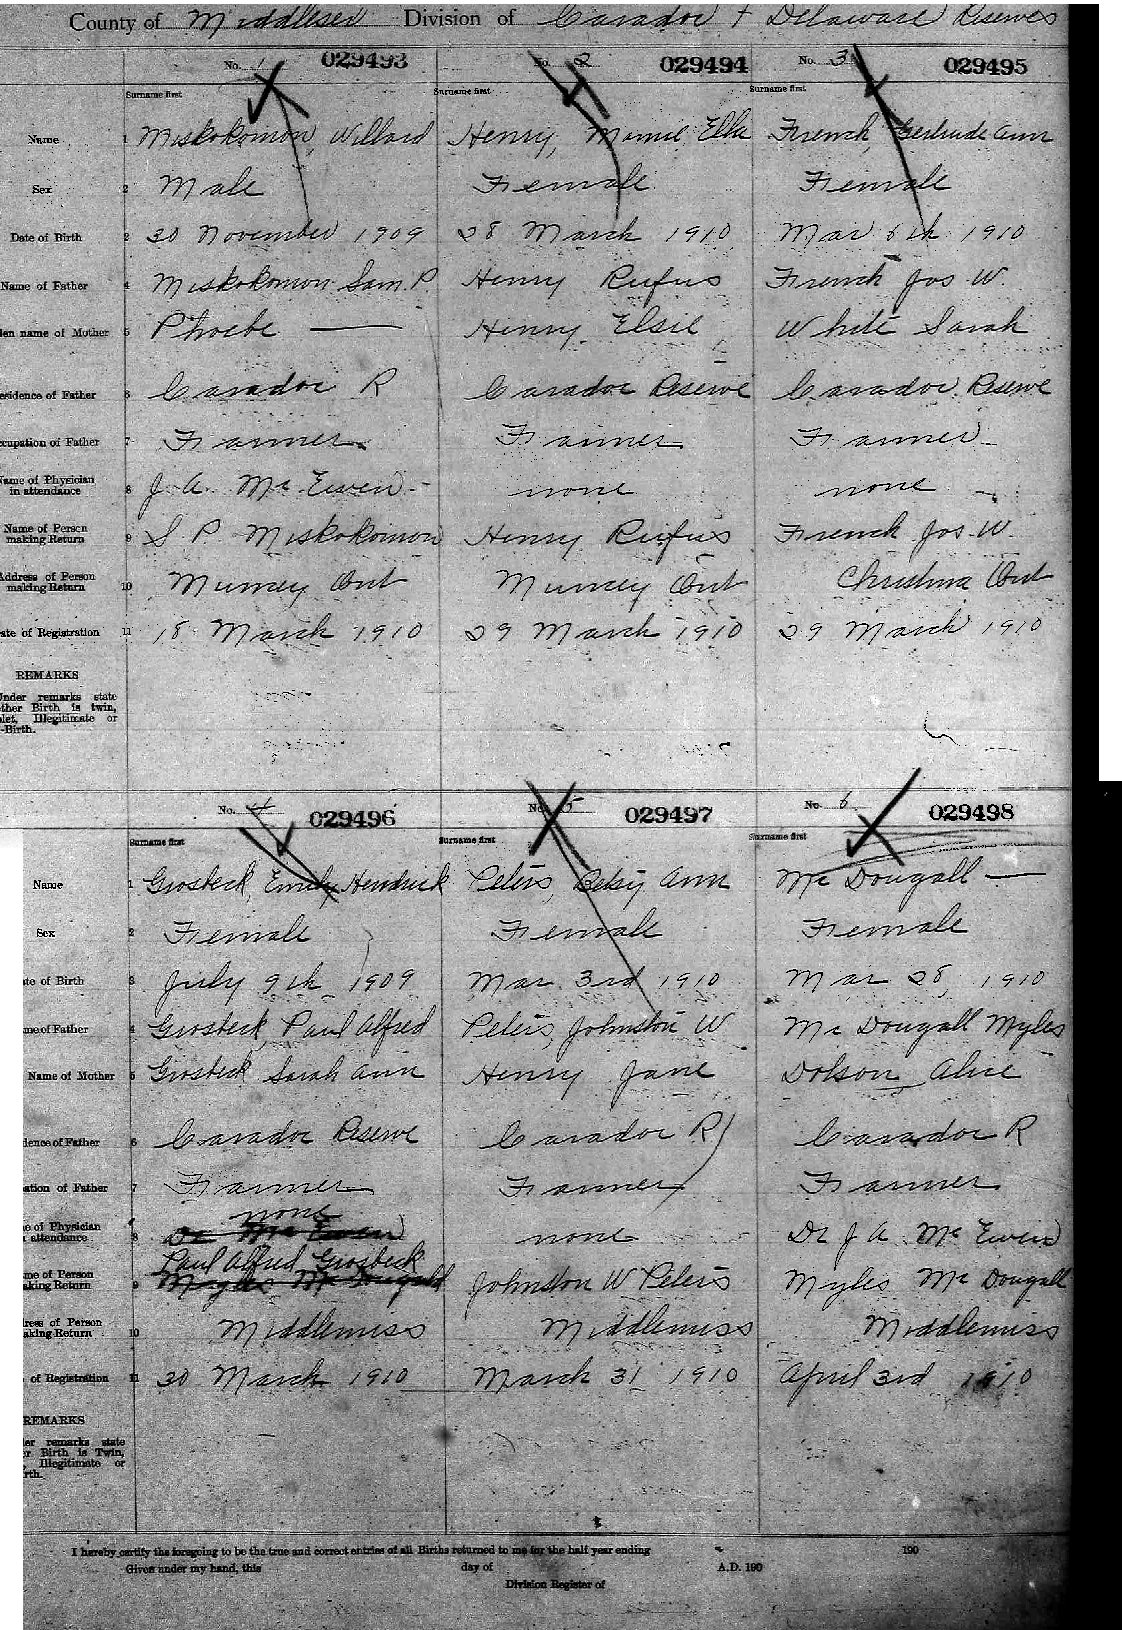 County of Middlesex Division of Caradoc + Delaware Reserves
No. 1 029493 No. 2 029494 No. 3 029495
Surname first Surname first Surname first
Name 1 Miskokomon, Willard Henry, Mamie Ella French, Gertrude Ann
Sex 2 Male Female Female
Date of Birth 3 30 November 1909 28 March 1910 Mar 6th 1910
Name of Father 4 Miskokomon Sam. P Henry Rufus French Jos W.
den name of Mother 5 Phoebe — Henry Elsie White Sarah
esidence of Father 6 Caradoc R Caradoc Reserve Caradoc Reserve
cupation of Father 7 Farmer Farmer Farmer
Name of Physician
in attendance 8 J. A. McEwen none none
Name of Person
making Return 9 S P Miskokomon Henry Rufus French Jos. W.
Address of Person
making Return 10 Muncey Ont Muncey Ont Christina Ont
ate of Registration 11 18 March 1910 29 March 1910 29 March 1910
REMARKS
Under remarks state
ther Birth is twin,
plet, Illegitimate or
-Birth.
No. 4 029496 No. 5 029497 No. 6 029498
Surname first Surname first Surname first
Name 1 Grosbeck, Emily Hendrick Peters, Betsy Ann McDougall —
Sex 2 Female Female Female
te of Birth 3 July 9th 1909 Mar 3rd 1910 Mar 28, 1910
me of Father 4 Grosbeck, Paul Alfred Peters, Johnston W McDougall Myles
Name of Mother 5 Grosbeck Sarah Ann Henry Jane Dolson Alice
dence of Father 6 Caradoc Reserve Caradoc R Caradoc R
ation of Father 7 Farmer Farmer Farmer
none
e of Physician
attendance 8 Dr McEwen none Dr J A McEwen
Paul Alfred Grosbeck
me of Person
king Return 9 Myles McDougald Johnston W Peters Myles McDougall
ress of Person
aking Return 10 Middlemiss Middlemiss Middlemiss
of Registration 11 30 March 1910 March 31 1910 April 3rd 1910
REMARKS
er remarks state
r Birth is Twin,
, Illegitimate or
rth.
I hereby certify the foregoing to be the true and correct entries of all Births returned to me for the half year ending 190
Given under my hand, this day of A.D. 190
Division Register of